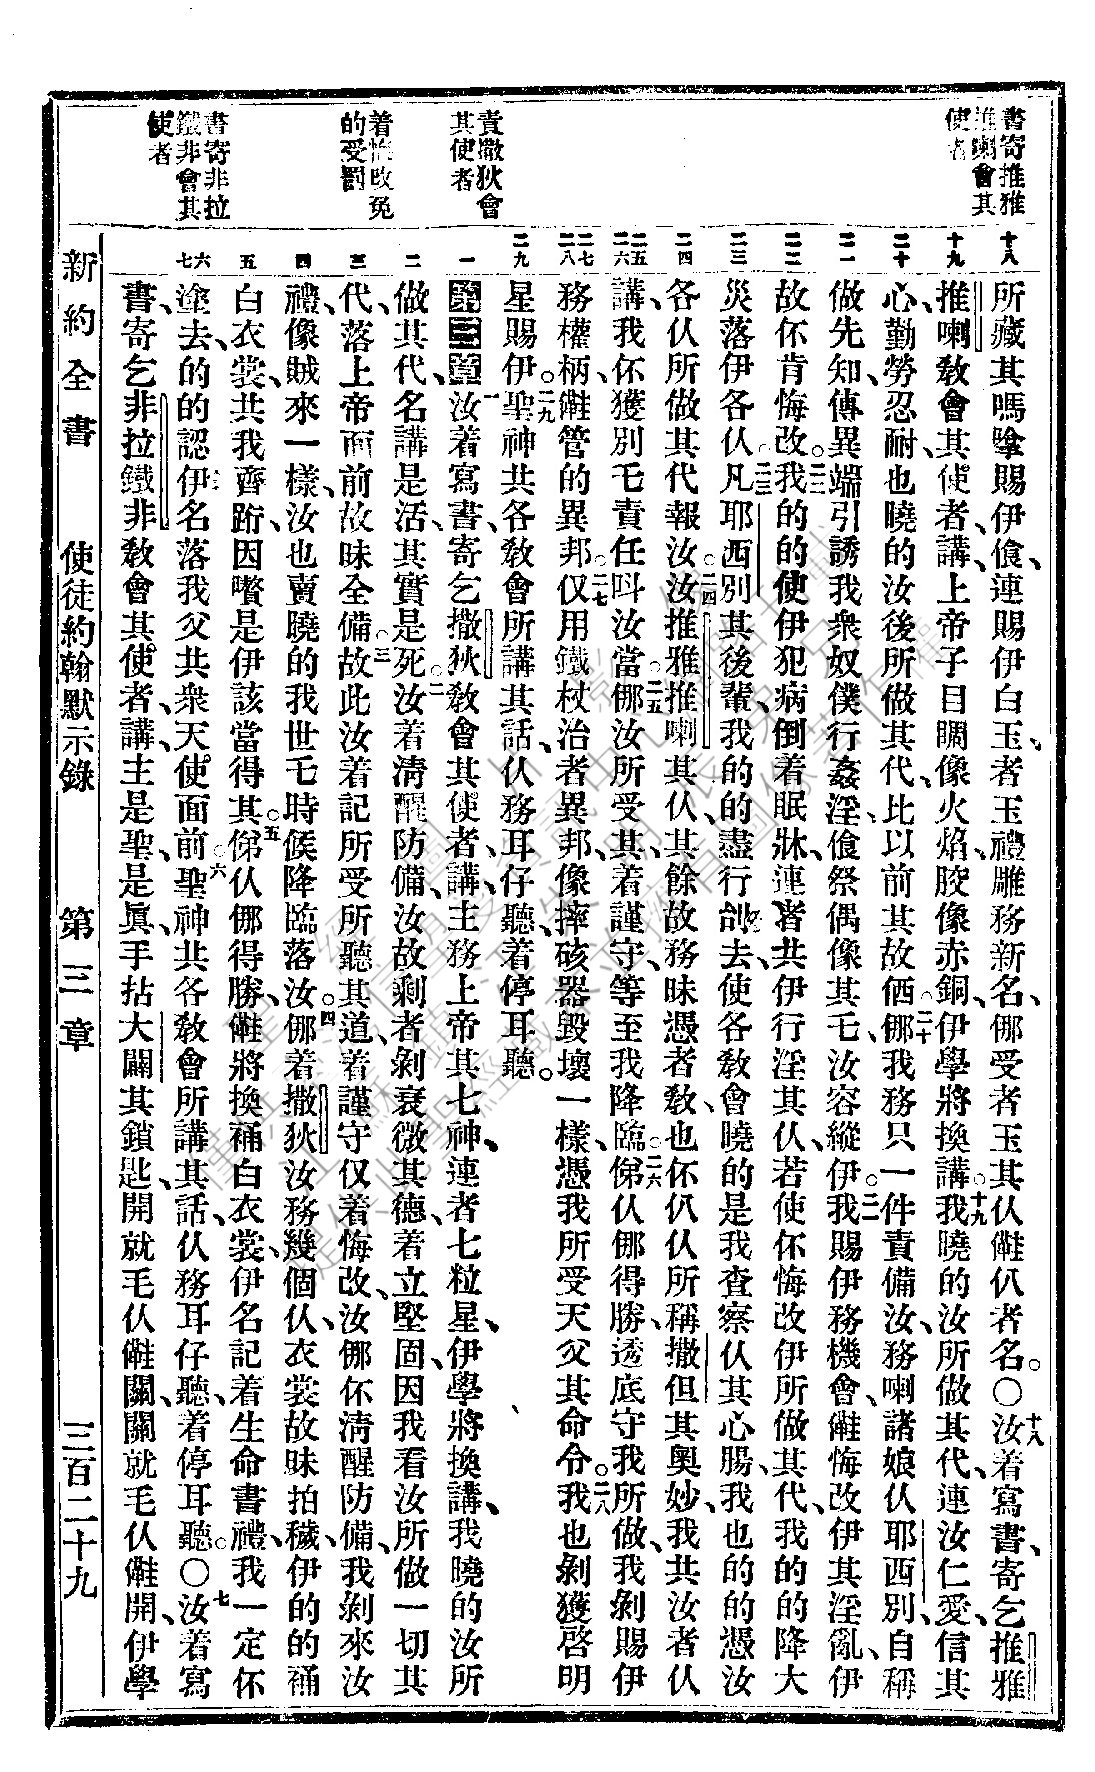 書寄推雅
推喇會其
使者
責撒狄會
其使者
着悔改免
的受罰
書寄非拉
鐵非會其
使者
十八
十九
二十
二一
二二
二三
二四
二五
二六
二七
二八
二九
一
二
三
四
五
六
七
所藏其嗎𠲥賜伊飧、連賜伊白玉者玉禮雕務新名、㑚受者玉其仈𣍐仈者名。〇十八汝着寫書、寄乞推雅
推喇教會其使者、講、上帝子目睭像火焰、骹像赤銅、伊學將換講、〇十九我曉的汝所做其代、連汝仁愛、信其
心、勤勞、忍耐、也曉的汝後所做其代、比以前其故𠍲、〇二十㑚我務只一件責備汝、務喇諸娘仈耶西別、自稱
做先知、傳異端引誘我衆奴僕行姦淫、飧祭偶像其乇、汝容縱伊。〇二一我賜伊務機會、𣍐悔改伊其淫亂、伊
故伓肯悔改。〇二二我的的使伊犯病倒着眠牀、連者共伊行淫其仈、若使伓悔改伊所做其代、我的的降大
災落伊各仈。〇二三凡耶西別其後輩、我的的盡行刣去、使各教會曉的是我查察仈其心腸、我也的的憑汝
各仈所做其代報汝。〇二四汝推雅推喇其仈、其餘故務昧憑者教、也伓仈仈所稱撒但其奥妙、我共汝者仈
講、我伓獲別乇責任叫汝當。〇二五㑚汝所受其、着謹守、等至我降臨。〇二六俤仈㑚得勝、透底守我所做、我剝賜伊
務權柄、𣍐管的異邦。〇二七仅用鐵杖治者異邦、像摔硋器毀壞一樣、憑我所受天父其命令。〇二八我也剝獲啓明
星賜伊。〇二九聖神共各教會所講其話、仈務耳仔聽、着停耳聽。
第三章一汝着寫書寄乞撒狄教會其使者、講、主務上帝其七神、連者七粒星、伊學將換講、我曉的汝所
做其代、名講是活、其實是死。〇二汝着淸醒防備、汝故剩者剝衰微其德、着立堅固、因我看汝所做一切其
代、落上帝面前、故昧全備。〇三故此汝着記所受所聽其道、着謹守、仅着悔改、汝㑚伓淸醒防備、我剝來汝
禮、像賊來一樣、汝也賣曉的我世乇時候降臨落汝。〇四㑚着撒狄、汝務幾個仈、衣裳故昧拍穢、伊的的䘄
白衣裳、共我齊跡、因囋是伊該當得其。〇五俤仈㑚得勝、𣍐將換䘄白衣裳、伊名記着生命書禮、我一定伓
塗去、的的認伊名落我父共衆天使面前。〇六聖神共各教會所講其話、仈務耳仔聽、着停耳聽。〇七汝着寫
書、寄乞非拉鐵非教會其使者、講、主是聖、是眞、手拈大闢其鎖匙、開就毛仈𣍐關、關就毛仈𣍐開、伊學
新約全書　使徒約翰默示錄　第三章　三百二十九